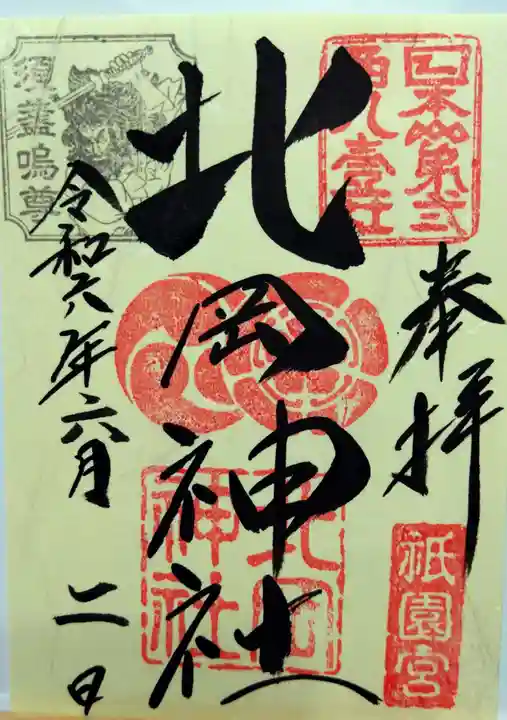 奉拝
日本第二
西九壹社
祇園宮
北岡神社
北岡
神社
須盞嗚尊
令和六年六月二日